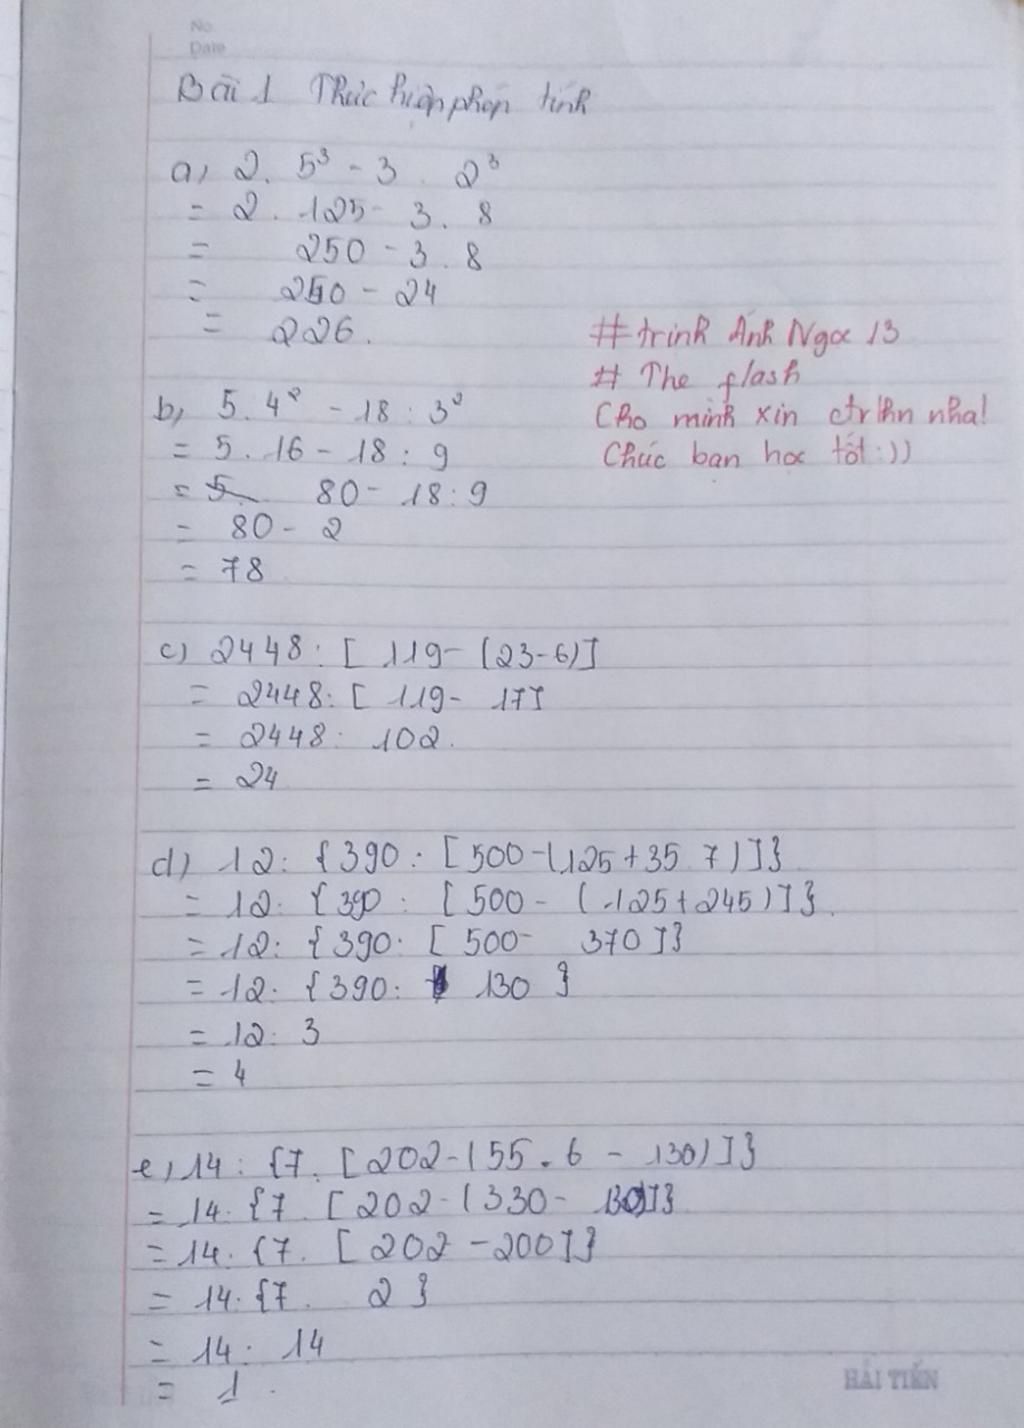 No.
Date
Bài 1 Thực hiện phép tính
a) 2. 5³ - 3 . 2³
= 2 . 125 - 3 . 8
= 250 - 3 . 8
= 250 - 24
= 226.
# trinh Ánh Ngọc 13
# The flash
Cho mình xin ctrlhn nha!
Chúc bạn học tốt :))
b) 5 . 4² - 18 : 3²
= 5 . 16 - 18 : 9
= 80 - 18 : 9
= 80 - 2
= 78
c) 2448 : [ 119 - (23-6)]
= 2448 : [ 119 - 17]
= 2448 : 102.
= 24
d) 12 : {390 : [500-(125+35 7)]}
= 12 : {390 : [500 - (125+245)]}.
= 12 : {390 : [ 500 - 370]}
= 12 : {390 : 130 }
= 12 : 3
= 4
e) 14 : {7. [202-(55 . 6 - 130)]}
= 14 : {7 . [202 - (330 - 130)]}
= 14 : {7 . [202 - 200]}
= 14 : {7 . 2 }
= 14 : 14
= 1 .
HẢI TIẾN